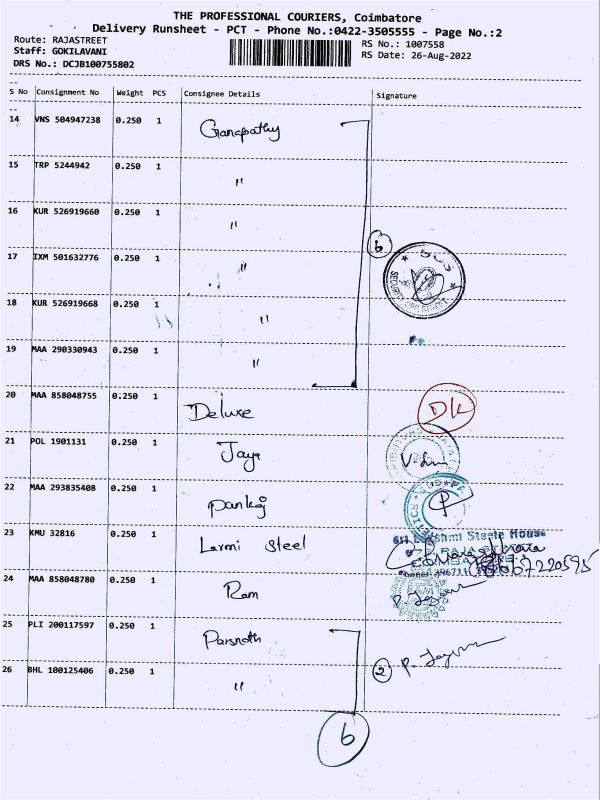 THE PROFESSIONAL COURIERS, Coimbatore
Delivery Runsheet - PCT - Phone No.:0422-3505555 - Page No.:2
Route: RAJASTREET
RS No.: 1007558
Staff: GOKILAVANI
RS Date: 26-Aug-2022
DRS No.: DCJB100755802
S No Consignment No Weight PCS Consignee Details Signature
14 VNS 504947238 0.250 1 Ganapathy
15 TRP 5244942 0.250 1 "
16 KUR 526919660 0.250 1 "
6
17 IXM 501632776 0.250 1 "
18 KUR 526919668 0.250 1 "
19 MAA 290330943 0.250 1 "
20 MAA 858048755 0.250 1 Deluxe DK
21 POL 1901131 0.250 1 Jaya
22 MAA 293835408 0.250 1 Pankaj
23 KMU 32816 0.250 1 Laxmi Steel
Sri Lakshmi Steele House
24 MAA 858048780 0.250 1 Ram
25 PLI 200117597 0.250 1 Parsnath
26 BHL 100125406 0.250 1 " 2
6